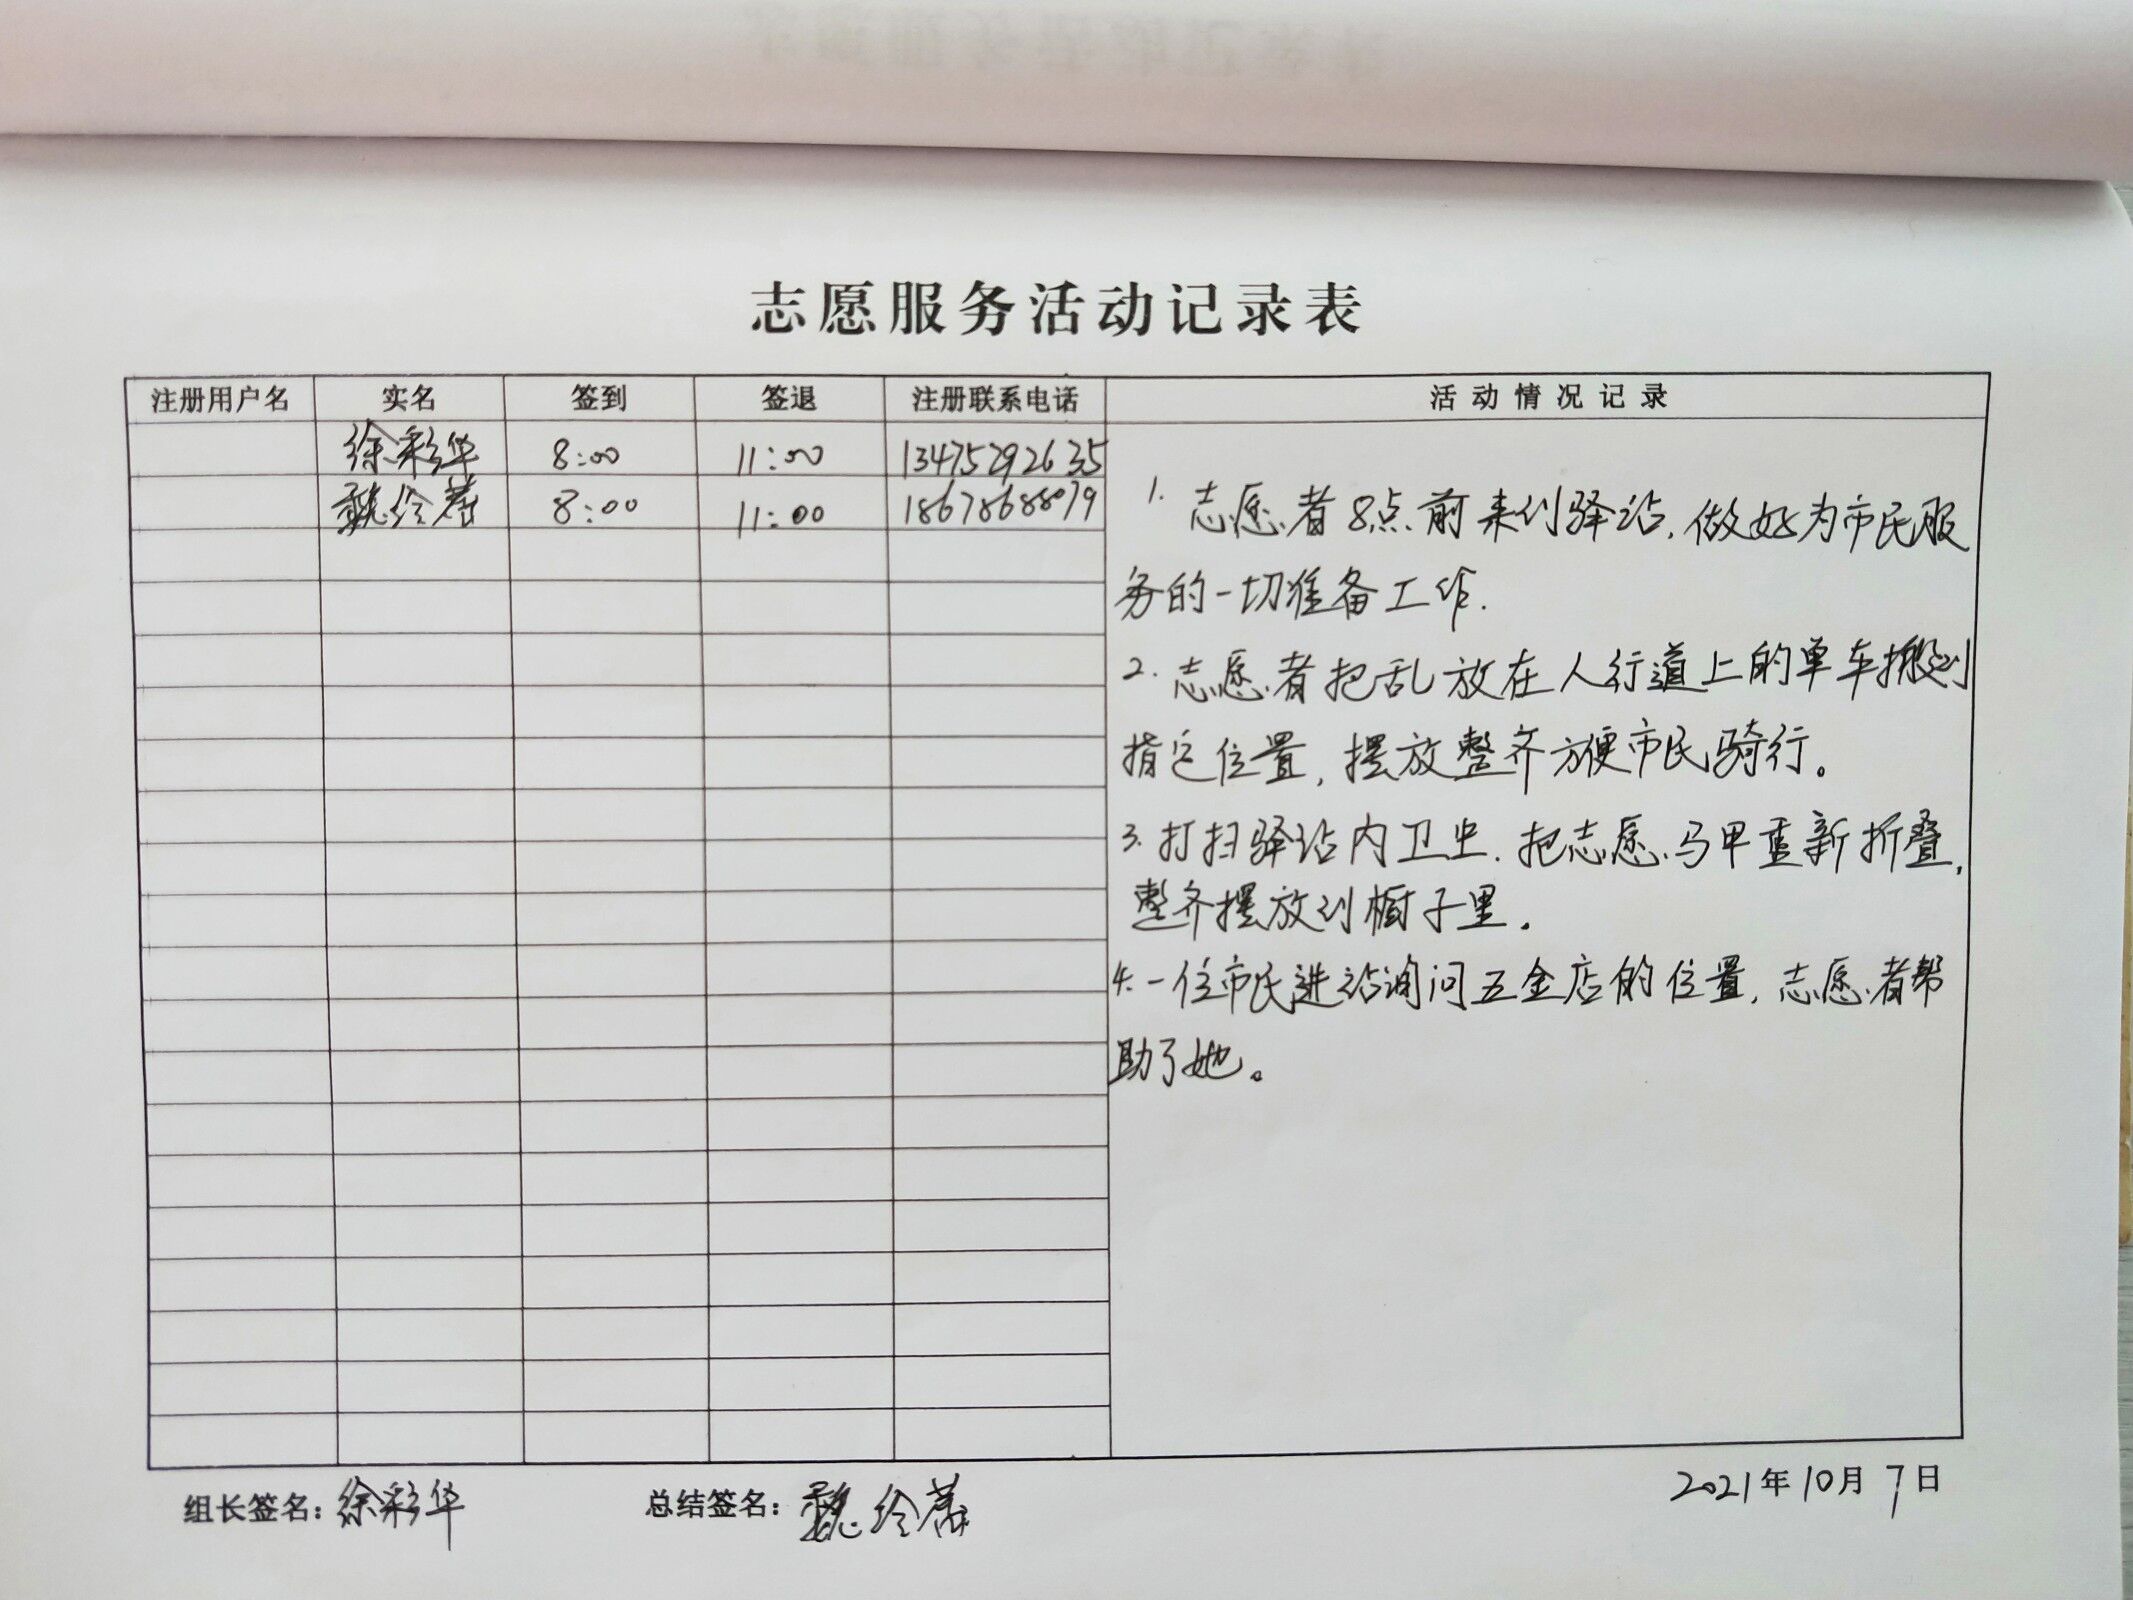 志愿服务活动记录表
注册用户名 实名 签到 签退 注册联系电话 活动情况记录
徐彩华 8:00 11:00 13475292635
魏 8:00 11:00 18678688079
1. 志愿者8点前来到驿站,做好为市民服
务的一切准备工作.
2. 志愿者把乱放在人行道上的单车搬到
指定位置,摆放整齐方便市民骑行。
3. 打扫驿站内卫生.把志愿马甲重新折叠,
整齐摆放到橱子里.
4. 一位市民进站询问五金店的位置,志愿者帮
助了她。
组长签名:徐彩华 总结签名:魏 2021年10月7日